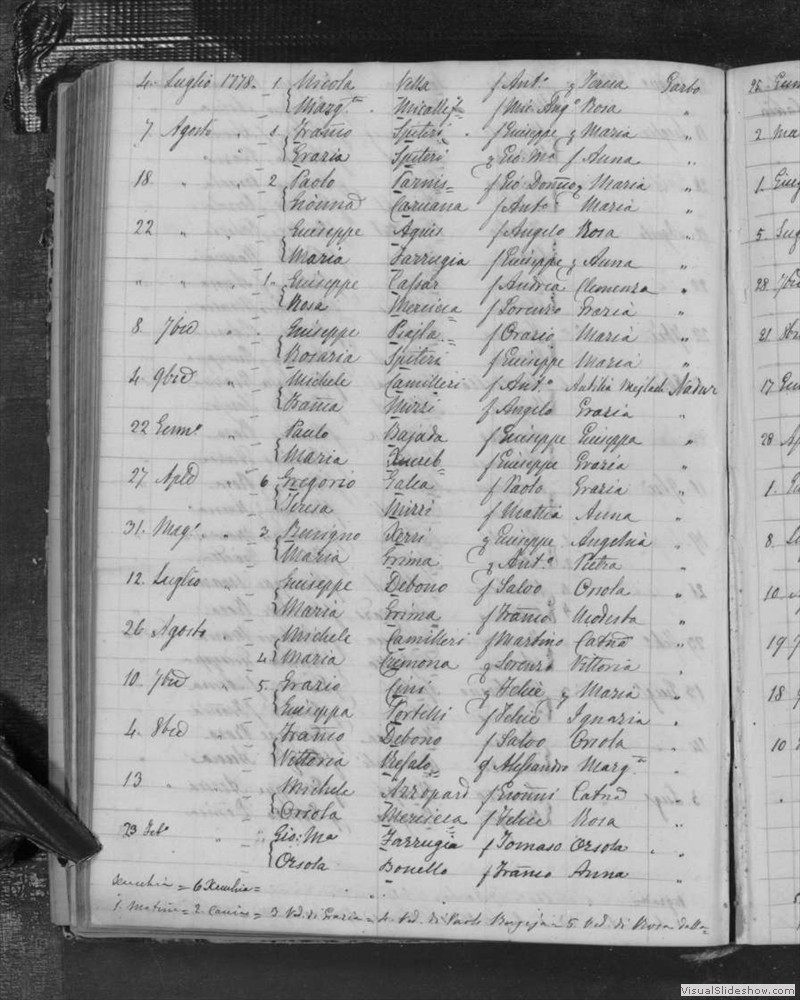 4. Luglio 1778. 1. Nicola Vella f Ant.o q Teresa Garbo
Marg.ta Micallef f Mic. Ang.o Rosa „
7 Agosto „ 1 Franco Spiteri f Giuseppe q Maria „
Grazia Spiteri q Gio Ma f Anna „
18. „ 2 Paolo Parnis f Gio Dom.co q Maria „
Caruana f Ant.o Maria „
22 „ „ Giuseppe Agius f Angelo Rosa „
Maria Farrugia f Giuseppe q Anna „
„ „ „ 1. Giuseppe Cassar f Andrea Clemenza „
Rosa Mercieca f Lorenzo Grazia „
8. 7bre „ Giuseppe Psajla f Orazio Maria „
Rosaria Spiteri f Giuseppe Maria „
4. 9bre „ Michele Camilleri f Ant.o Mejlach Nadur
Franca Mizzi f Angelo Grazia „
22 Genn.o „ Paulo Bajada f Giuseppe Giuseppa „
Maria Xuereb f Giuseppe Grazia „
27. Aple 6 Gregorio Galea f Paolo Grazia „
Teresa Mizzi f Mattia Anna „
31. Mag.o „ 2. Benigno Xerri q Giuseppe „
Maria Grima q Ant.o Pietra „
12. Luglio „ Giuseppe Debono f Salvo Orsola „
Maria Grima f Franco Modesta „
26. Agosto „ Michele Camilleri f Martino Catna „
4 Maria Cremona q Lorenzo Vittoria „
10. 7bre 5. Grazio Cini q Felice q Maria „
Giuseppa Portelli f Felice Ignazia „
4. 8bre Franco Debono f Salvo Orsola „
Vittoria Refalo q Alessandro Marg.ta „
13 Michele Azzopard f Gionni Catna „
Orsola Mercieca f Felice Rosa „
23 Feb.o „ Gio: Ma Farrugia f Tomaso Orsola „
Orsola Bonello f Franco Anna „
= 6 =
1. = 2. = 3 Ved. di Grazia = 4. Ved. di Paolo = 5. Ved. di Rosa
25
2. Ma
1.
5. Lug
28. 7bre
21
17 Gen
28 Ap
1.
8.
10.
19.
18
10
VisualSlideshow.com